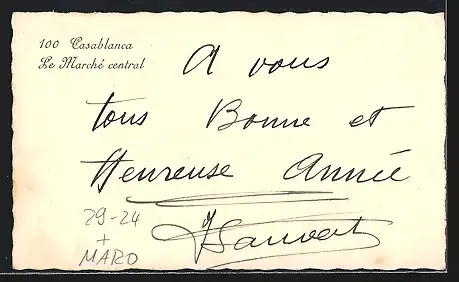 100 Casablanca
Le Marché central
A vous
tous Bonne et
Heureuse Année
29-24
+
MARO